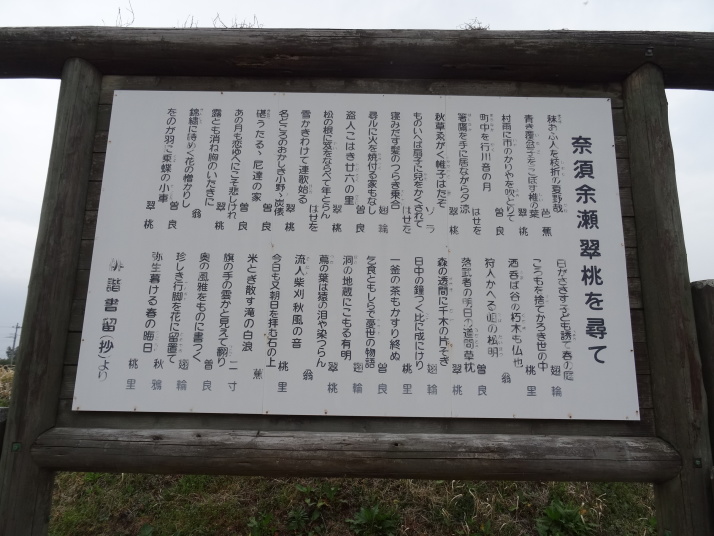 奈須余瀬 翠桃を尋て
秣おふ人を枝折の夏野哉 芭蕉
青き覆盆子をこぼす椎の葉 翠桃
村雨に市のかりやを吹とりて 曽良
町中を行川音の月 はせを
箸鷹を手に居ながら夕涼 翠桃
秋草ゑがく帷子はたそ ソラ
ものいへば扇子に㒵をかくされて はせを
寝みだす髪のつらき乗合 翅輪
尋ルに火を焼付る家もなし 曽良
盗人こはき廿六の里 翠桃
松の根に笈をならべて年とらん はせを
雪かきわけて連歌始る 翠桃
名どころのおかしき小野ゝ炭俵
碪うたるゝ尼達の家 曽良
あの月も恋ゆへにこそ悲しけれ 翠桃
露とも消ね胸のいたきに 翁
錦繍に時めく花の憎かりし 曽良
をのが羽に乗蝶の小車 翠桃
日がささす子ども誘て春の庭 翅輪
ころもを捨てかろき世の中 桃里
酒呑ば谷の朽木も仏也 翁
狩人かへる岨の松明 曽良
落武者の明日の道問草枕 翠桃
森の透間に千木の片そぎ 翅輪
日中の鐘つく比に成にけり 桃里
一釜の茶もかすり終ぬ 曽良
乞食ともしらで憂世の物語 翅輪
洞の地蔵にこもる有明 翠桃
蔦の葉は猿の泪や染つらん 翁
流人柴刈秋風の音 桃里
今日も又朝日を拝む石の上 蕉
米とぎ散す滝の白浪 二寸
旗の手の雲かと見えて飜り 曽良
奥の風雅をものに書つく 翅輪
珍しき行脚を花に留置て 秋鴉
弥生暮ける春の晦日 桃里
俳諧書留(抄)より